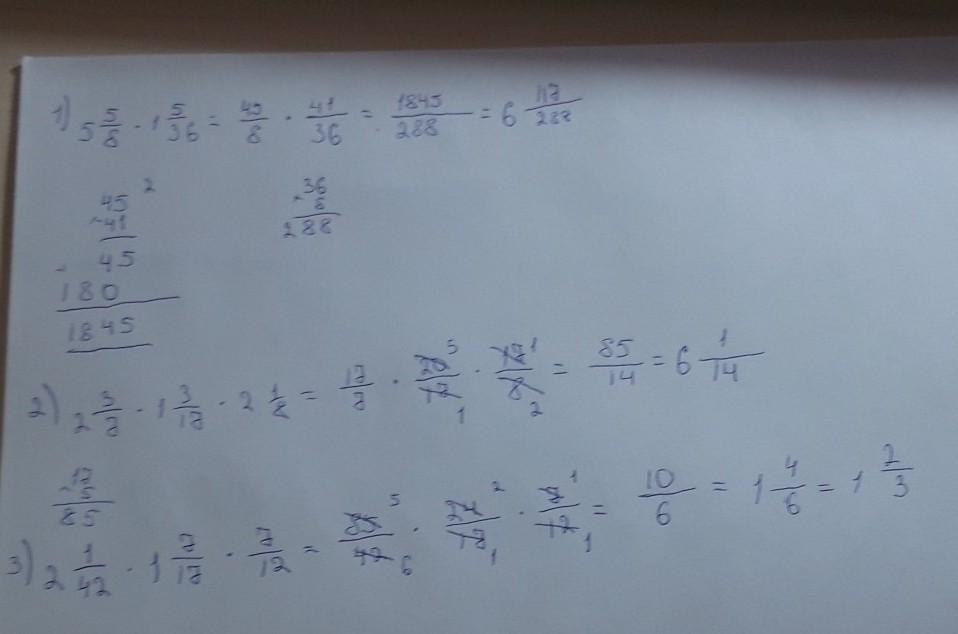 1) 5 5/8 · 1 5/36 = 45/8 · 41/36 = 1845/288 = 6 117/288
45 2
× 41
45
180
1845
36
× 8
288
2) 2 3/7 · 1 3/17 · 2 1/8 = 17/7 · 20 5/17 1 · 17 1/8 2 = 85/14 = 6 1/14
17
× 5
85
3) 2 1/42 · 1 7/17 · 7/12 = 85 5/42 6 · 24 2/17 1 · 7 1/12 1 = 10/6 = 1 4/6 = 1 2/3